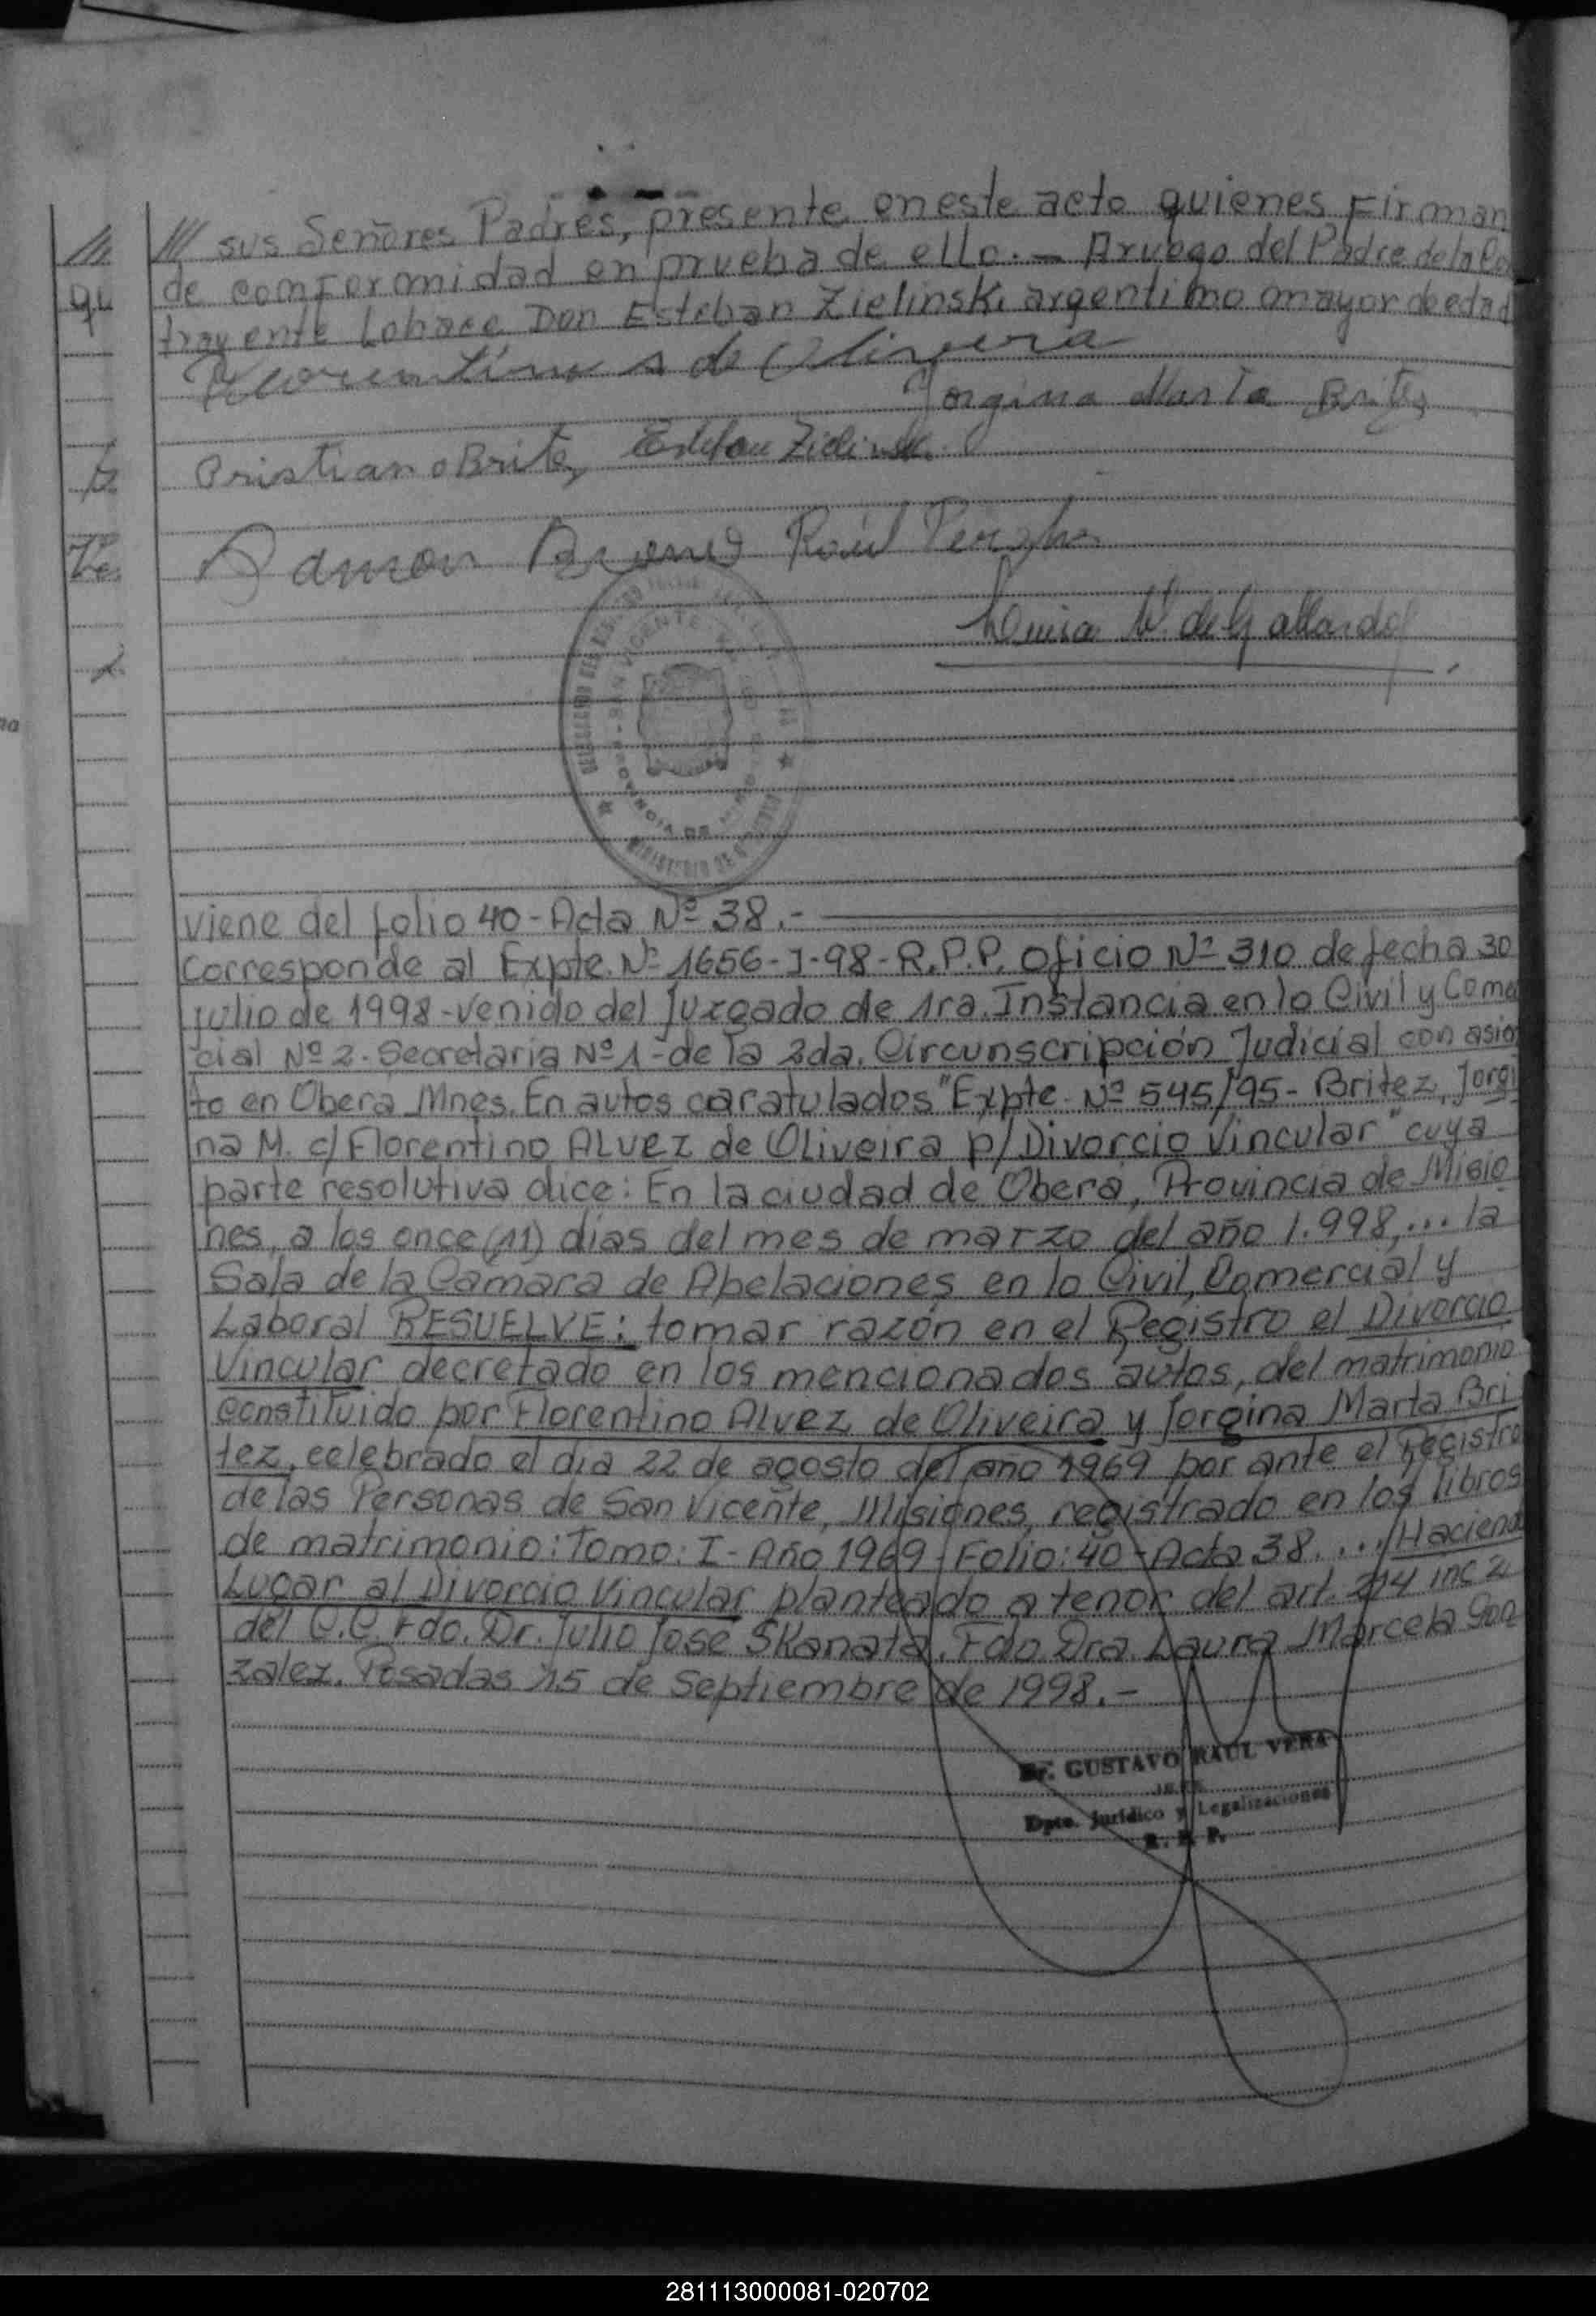 /// sus Señores Padres, presente en este acto quienes Firman
de comFormidad en prueba de ello.- Aruego del Padre de la Co
trayente Lohace Don Esteban Zielinski argentino mayor de edad
de Oliveira
Jorgina Marta Britez
Cristiano Britez Esteban Zielinski
Ramon Raúl
de Gallardo
SAN VICENTE
viene del folio 40 - Acta Nº 38.-
Corresponde al Expte. Nº 1656-J-98-R.P.P. Oficio Nº 310 de fecha 30
julio de 1998 - venido del Juzgado de 1ra. Instancia en lo Civil y Comer
cial Nº 2. Secretaria Nº 1 - de la 2da. Circunscripción Judicial con asien
to en Oberá Mnes. En autos caratulados "Expte. Nº 545/95 - Britez, Jorgi
na M. c/ Florentino ALVEZ de Oliveira p/ Divorcio Vincular" cuya
parte resolutiva dice: En la ciudad de Oberá, Provincia de Misio
nes, a los once (11) dias del mes de marzo del año 1.998,... la
Sala de la Cámara de Apelaciones en lo Civil, Comercial y
Laboral RESUELVE: tomar razón en el Registro el Divorcio
Vincular decretado en los mencionados autos, del matrimonio
constituido por Florentino Alvez de Oliveira y Jorgina Marta Bri
tez, celebrado el dia 22 de agosto del año 1969 por ante el Registro
de las Personas de San Vicente, Misiones, registrado en los libros
de matrimonio: Tomo: I - Año 1969 - Folio: 40 - Acta 38. ... Haciendo
Lugar al Divorcio Vincular planteado a tenor del art. 214 inc 2
del C.C. Fdo. Dr. Julio José Skanata. Fdo. Dra. Laura Marcela Gon
zalez. Posadas 15 de Septiembre de 1998.-
Dr. GUSTAVO RAUL VERA
JEFE
Dpto. Jurídico y Legalizaciones
R. P. P.
281113000081-020702